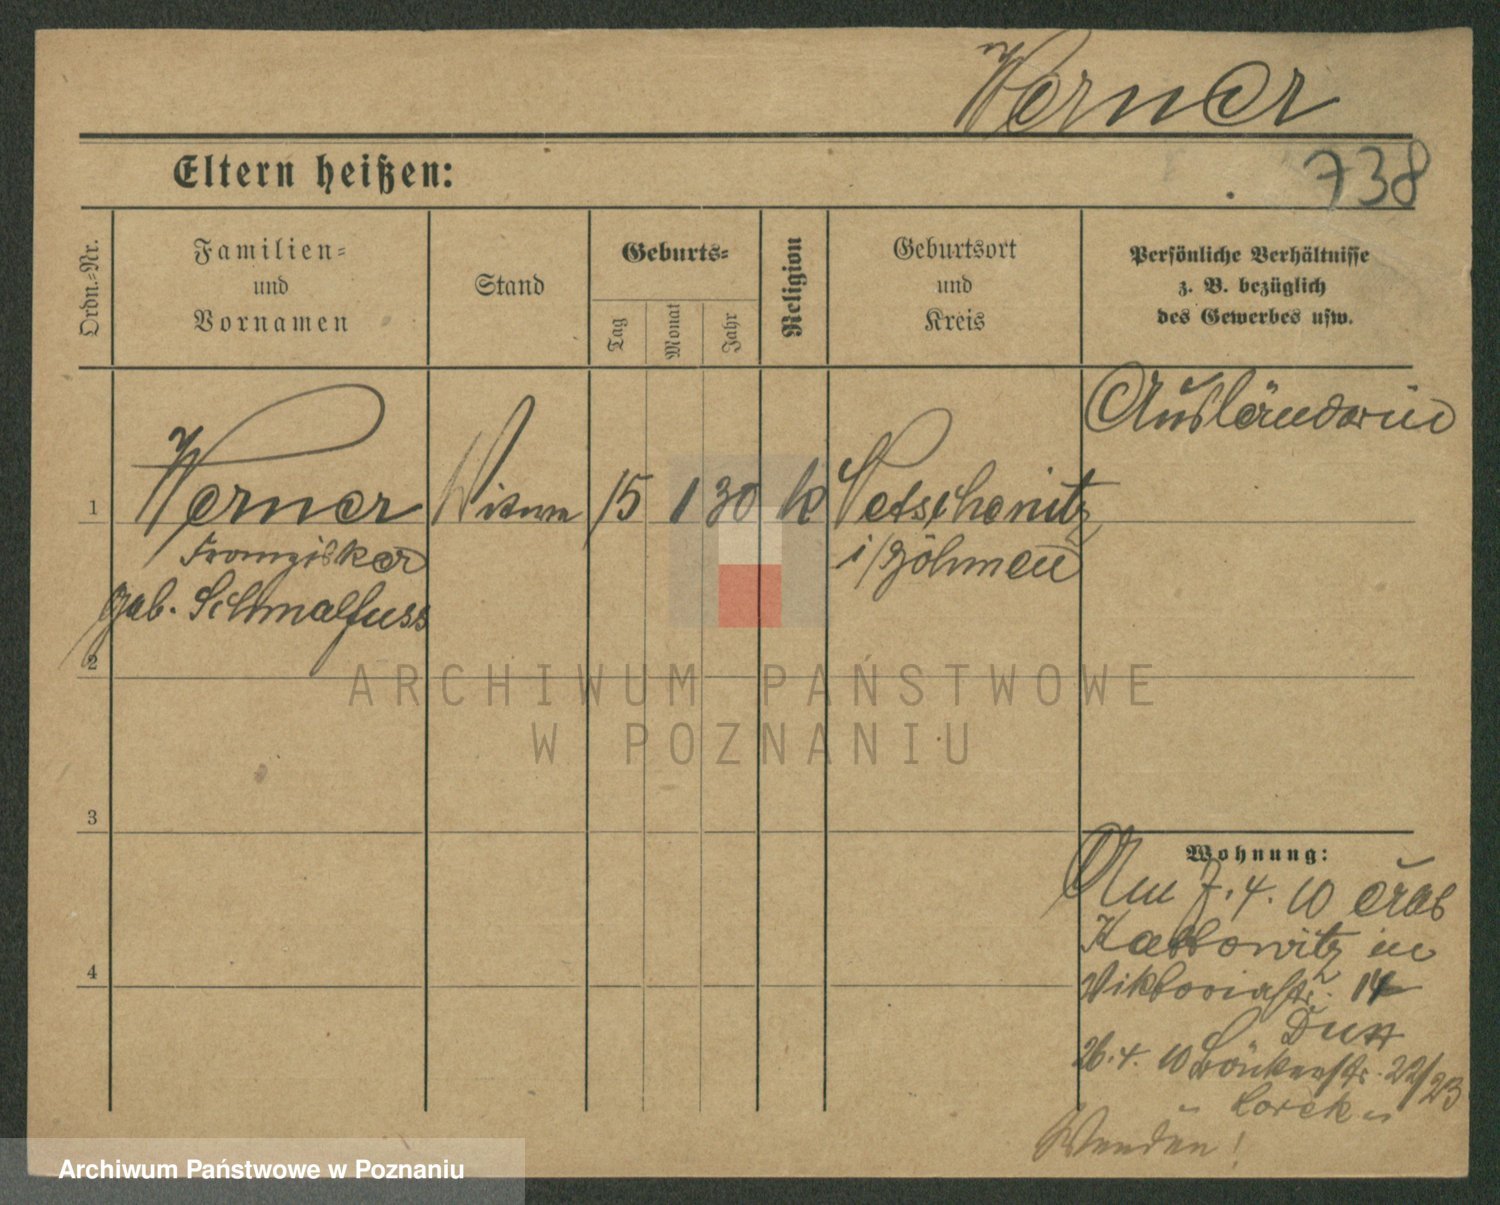 Werner
738
Eltern heißen:
Ordn.-Nr.
Familien-
und
Vornamen
Stand
Geburts-
Tag
Monat
Jahr
Religion
Geburtsort
und
Kreis
Persönliche Verhältnisse
z. B. bezüglich
des Gewerbes usw.
Ausländerin
1 Werner Witwe 15 1 30 k Vetschenitz
Franziska i/Böhmen
geb. Schmalfuss
2
3
4
Wohnung:
Am 7. 4. 10 aus
Kattowitz in
Viktoriastr. 14
26. 4. 10 Bäckerstr. 22/23
Wenden!
ARCHIWUM PAŃSTWOWE
W POZNANIU
Archiwum Państwowe w Poznaniu